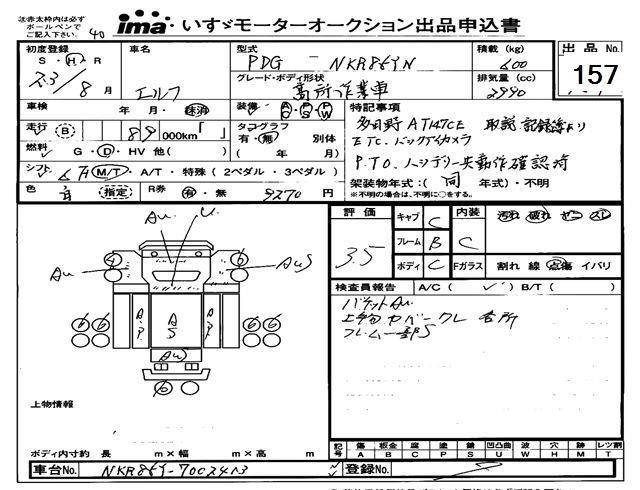 注赤太枠内は必ず
ボールペンで
ご記入下さい。 40
ima いすゞモーターオークション出品申込書
初度登録 S・H・R 23/8月
車名 エルフ
型式 PDG - NKR85YN
積載 (kg) 600
出品 No. 157
グレード・ボディ形状 高所作業車
排気量 (cc) 2990
車検 年・月・抹消
装備 AC PS PW
特記事項
走行 B 89 000km「 」
タコグラフ 有・無 別体 ( 年)
多田野 AT147CE 取説、記録簿より
燃料 G・D・HV 他( )
ETC、バックアイカメラ
シフト 6 F M/T・A/T・特殊 (2ペダル・3ペダル)
P.T.O、バッテリー共動作確認済
色 青 指定 R券 有・無 9270 円
架装物年式:( 同 年式)・不明
※不明の場合は、不明に○をする。
評価 3.5
キャブ C 内装 C 汚れ 破れ ヤニ スレ
フレーム B
ボディ C Fガラス 割れ 線 点傷 イバリ
Au. U.
4 6
Au AuS
検査員報告 A/C( ✓ ) B/T( )
バケットAu.
上物カバークレ 各所
フレーム一部S
6 6 A.P A S A.P 6 6
AuS
6
上物情報
ボディ内寸約 長 m×幅 m×高 m
記号 傷 A 板金 B 腐 C 塗 P 錆 S 凹凸曲 U 波 W 穴 H 跡 M レツ割 T
車台No. NKR85Y-7002413
登録No.